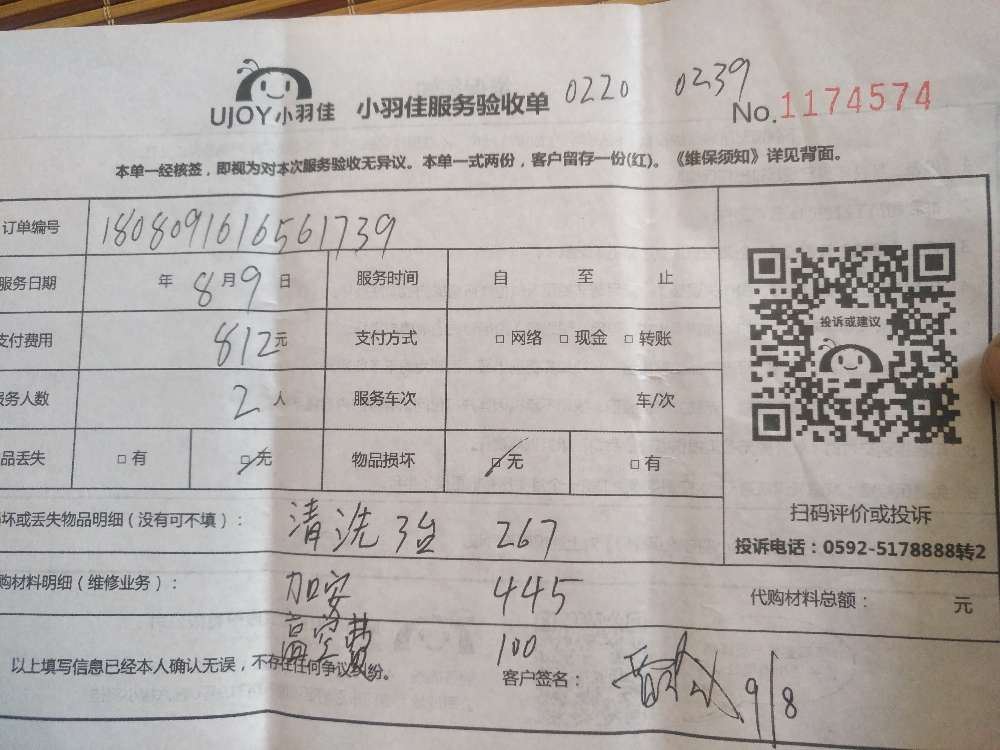 UJOY小羽佳 小羽佳服务验收单 0220 0239 No.1174574
本单一经核签，即视为对本次服务验收无异议。本单一式两份，客户留存一份(红)。《维保须知》详见背面。
订单编号 1808091616561739
服务日期 年 8月9日 服务时间 自 至 止
支付费用 812元 支付方式 □网络 □现金 □转账
服务人数 2人 服务车次 车/次
品丢失 □有 □无 物品损坏 □无 □有
投诉或建议
扫码评价或投诉
投诉电话：0592-5178888转2
坏或丢失物品明细（没有可不填）： 清洗3台 267
购材料明细（维修业务）： 加安 445 代购材料总额： 元
高空费 100
以上填写信息已经本人确认无误，不存在任何争议纠纷。 客户签名： 9/8